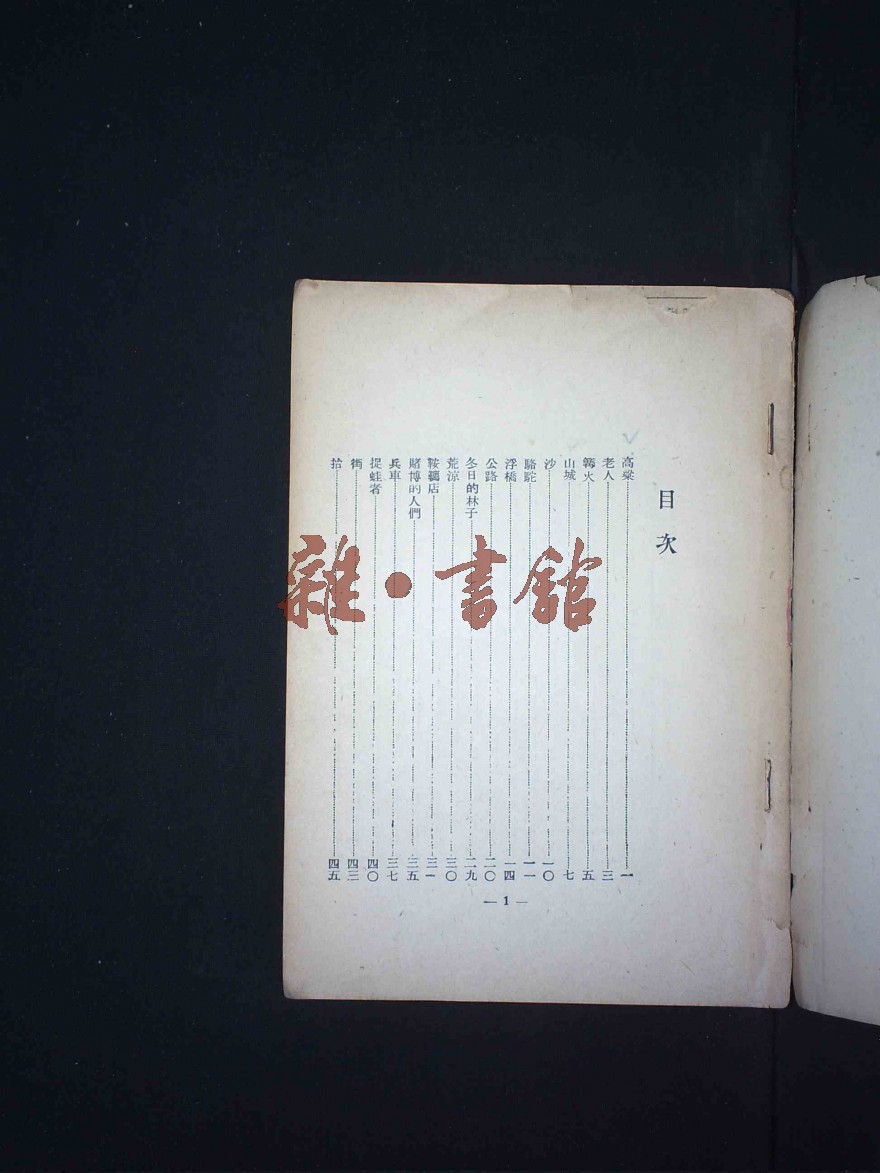 目次
高粱 一
老人 三
篝火 五
山城 七
沙 一〇
駱駝 一一
浮橋 一四
公路 二〇
冬日的林子 二九
荒涼 三〇
鞍韉店 三一
賭博的人們 三五
兵車 三七
捉蛙者 四〇
四三
拾 四五
— 1 —
雜·書館